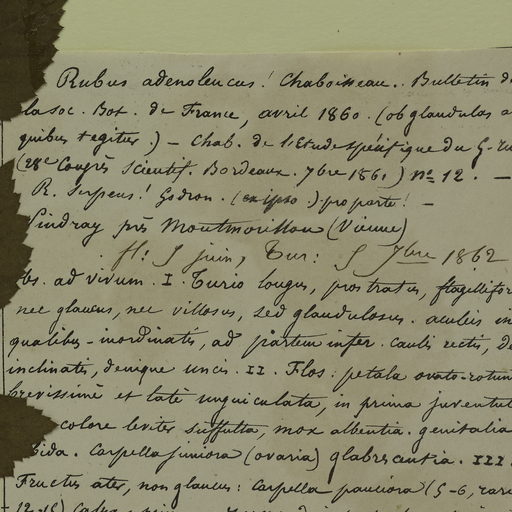 Rubus adenoleucus! Chaboisseau.. Bulletin de
la soc. Bot. de France, avril 1860. (ob glandulas a
quibus tegitur.) — Chab. de l'Etude spécifique du G. ru
(28e Congrès Scientif. Bordeaux. 7bre 1861) no 12. —
R. Serpens! Godron. (ex ipso) pro parte! —
Sindray près Montmorillon (Vienne)
fl: 5 juin, Tur: 5 7bre 1862
bs. ad vivum. I. Turio longus, prostratus, flagellifor
nec glaucus, nec villosus, sed glandulosus. aculeis in
qualibus - inordinatis, ad partem infer. caulis rectis, de
inclinatis, denique uncis. II. Flos: petala ovato-rotun
brevissimè et latè unguiculata, in prima juventut
colore leviter suffulta, mox albentia. genitalia
bida. Carpella juniora (ovaria) glabrescentia. III.
Fructus ater, non glaucus: Carpella pauciora (5-6, rari
12-15)